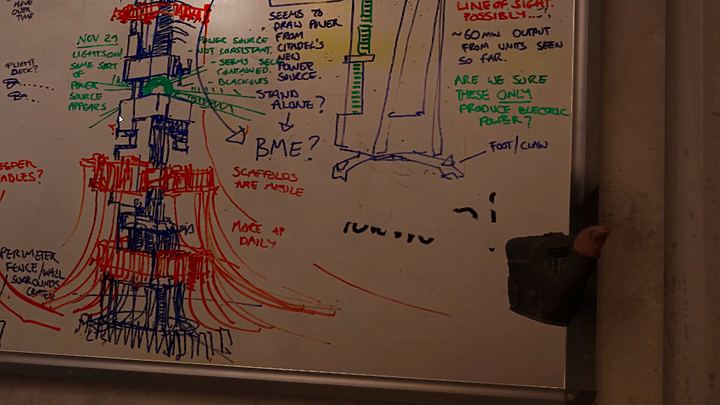 MOVE
OVER
TIME
FLIGHT
DECK?
NOV 29
LIGHTS ON!
SOME SORT
OF
POWER
SOURCE
APPEARS
POWER SOURCE
NOT CONSISTANT.
- SEEMS SELF
CONTAINED.
- BLACKOUTS
SEEMS TO
DRAW POWER
FROM
CITADEL'S
NEW
POWER
SOURCE.
STAND
ALONE?
BME?
LINE OF SIGHT
POSSIBLY....
~60MW OUTPUT
FROM UNITS SEEN
SO FAR.
ARE WE SURE
THESE ONLY
PRODUCE ELECTRIC
POWER?
FOOT/CLAW
SCAFFOLDS
ARE MOBILE
MORE UP
DAILY
PERIMETER
FENCE/WALL
SURROUNDS